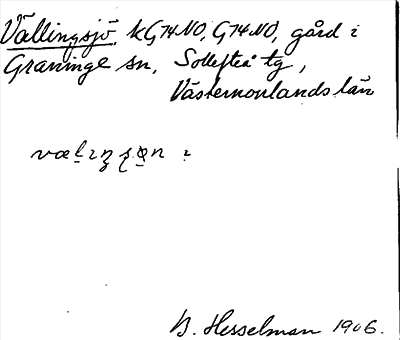 Vällingsjö, kG74NO, G74NO, gård i
Graninge sn, Sollefteå tg,
Västernorrlands län
B. Hesselman 1906.